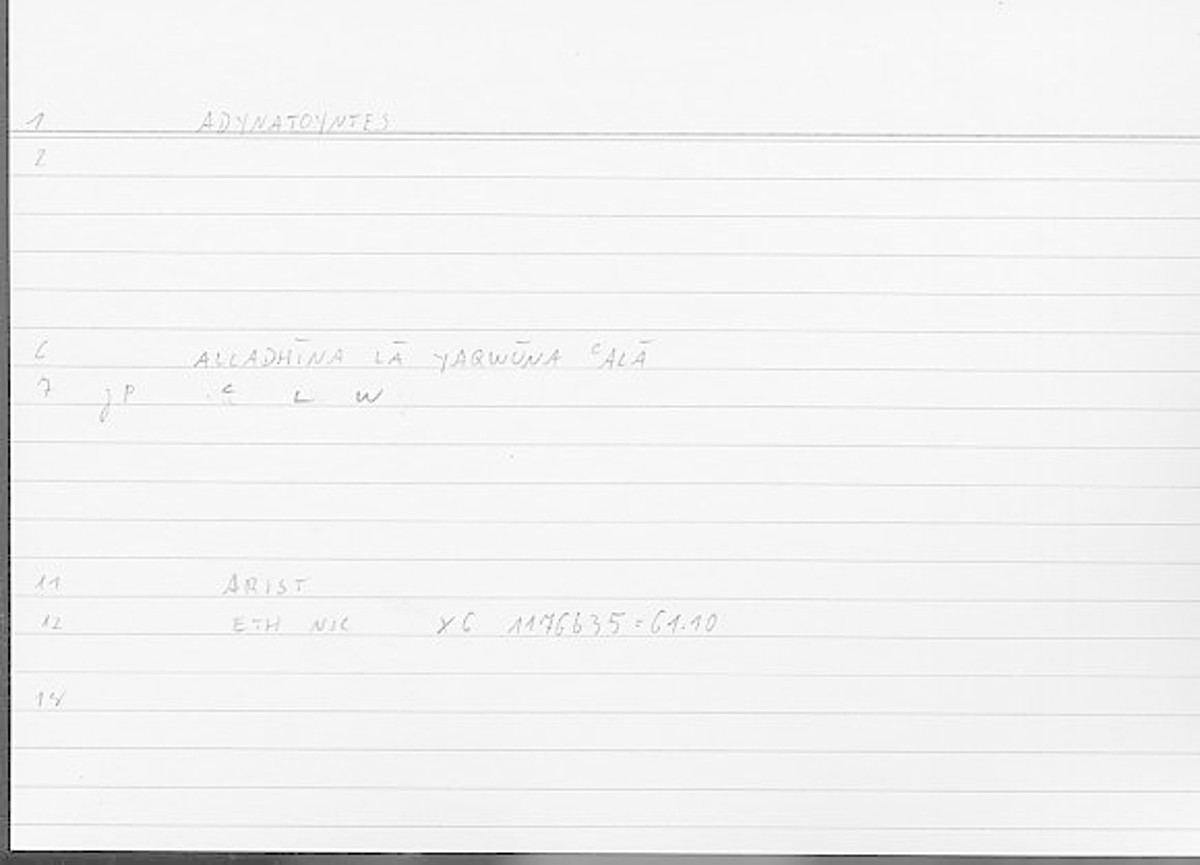 1 ADYNATOYNTES
2
6 ALLADHĪNA LĀ YAQWŪNA ʿALĀ
7 jP ʿ L W
11 ARIST
12 ETH NIC X6 1176b35 = 61.10